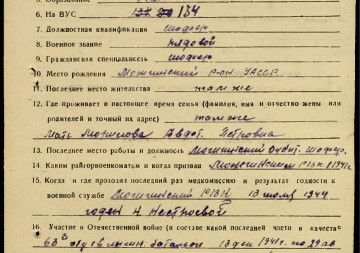 6. На ВУС 134
7. Должностная квалификация шофер
8. Военное звание рядовой
9. Гражданская специальность шофер
10. Место рождения Можгинский р-он УАССР
11. Последнее место жительства там же
12. Где проживает в настоящее время семья (фамилия, имя и отчество жены или
родителей и точный их адрес) там же
мать Авдот. Петровна
13. Последнее место работы и должность Можгинский шофер
14. Каким райгорвоенкоматом и когда призван Можгинским РВК 1941г.
15. Когда и где проходил последний раз медкомиссию и результат годности к
военной службе Можгинский РВК 13 июля 1944
годен к нестроевой
16. Участие в Отечественной войне (в составе какой последней части и в качестве
батальон 1941г. по